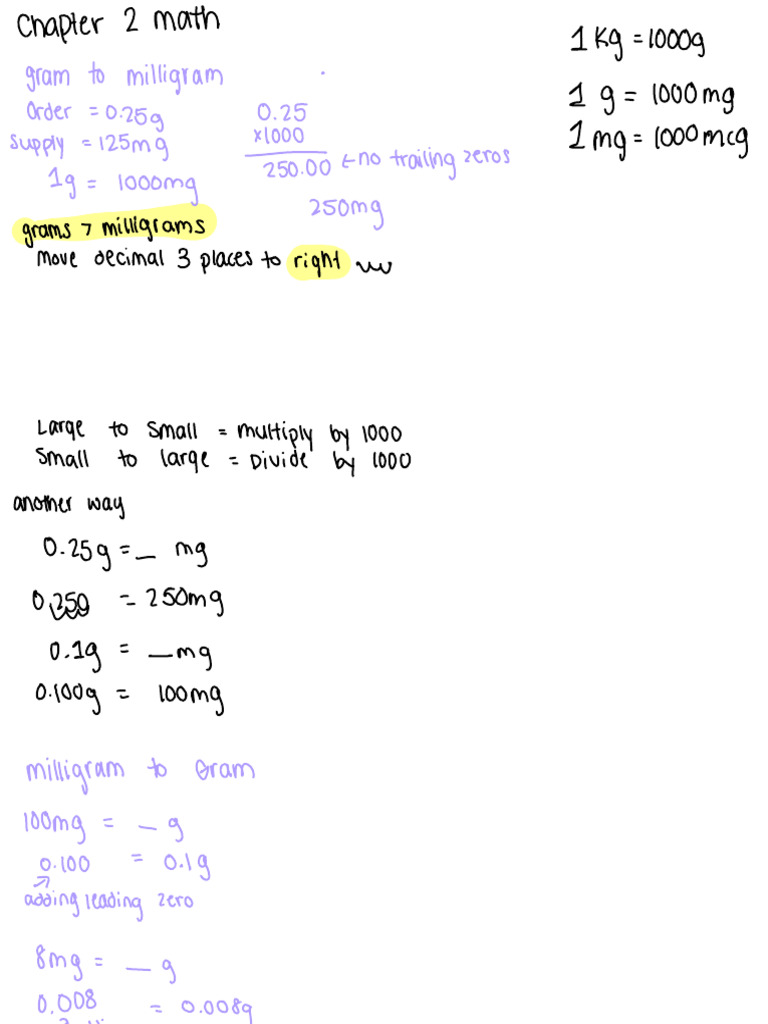 Chapter 2 math
1 Kg = 1000g
1 g = 1000 mg
1 mg = 1000 mcg
gram to milligram
Order = 0.25g
Supply = 125mg
1g = 1000mg
0.25
x1000
250.00 ← no trailing zeros
250mg
grams > milligrams
Move decimal 3 places to right
Large to Small = multiply by 1000
Small to large = Divide by 1000
another way
0.25g = _ mg
0.250 = 250mg
0.1g = _ mg
0.100g = 100mg
milligram to Gram
100mg = _ g
0.100 = 0.1g
adding leading zero
8mg = _ g
0.008 = 0.008g